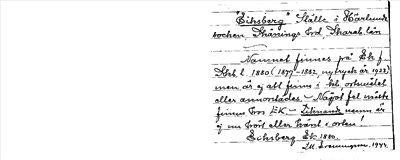 "Eiksberg" Ställe i Härlunda
socken, Skånings hrd, Skarab. län
Namnet finnes på Ek. f
Skb. l. 1880 (1877-1882, nytryck år 1922)
men är ej att finna i kb, ortnamn
eller annorstädes. - Något fel måste
finnas hos EK. - namn är
ej nu hört eller känt i orten!
Eiksberg Ek. 1880.
1944.